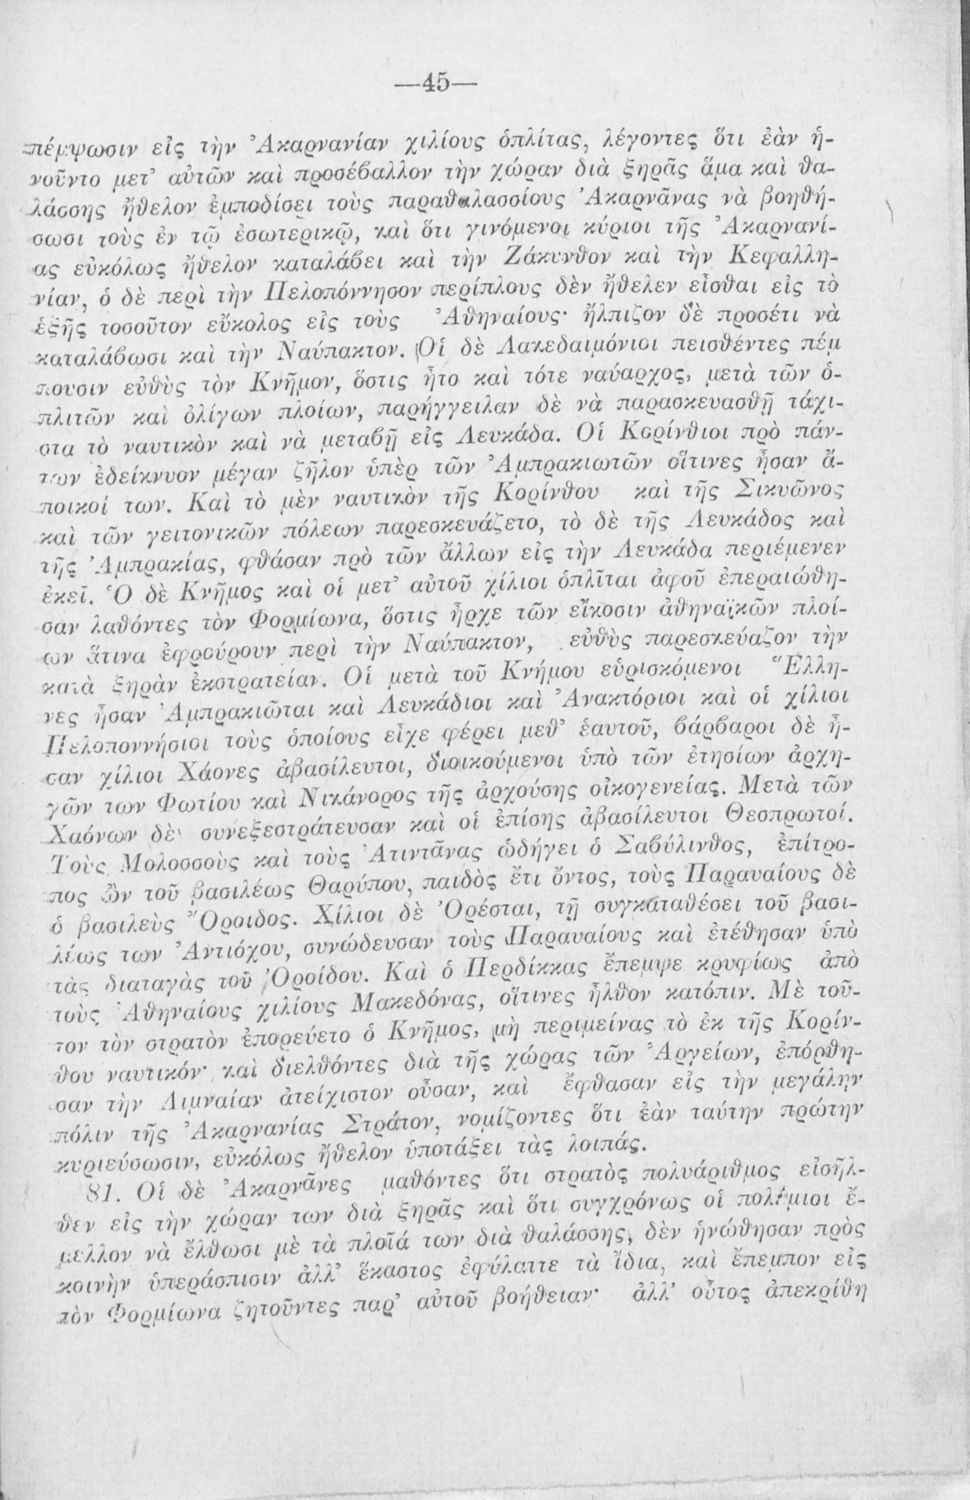 —45—
πέμψωσιν εἰς τὴν Ἀκαρνανίαν χιλίους ὁπλίτας, λέγοντες ὅτι ἐὰν ἡ-
νοῦντο μετ' αὐτῶν καὶ προσέβαλλον τὴν χώραν διὰ ξηρᾶς ἅμα καὶ θα-
λάσσης ἤθελον ἐμποδίσει τοὺς παραθαλασσίους Ἀκαρνᾶνας νὰ βοηθή-
σωσι τοὺς ἐν τῷ ἐσωτερικῷ, καὶ ὅτι γινόμενοι κύριοι τῆς Ἀκαρνανί-
ας εὐκόλως ἤθελον καταλάβει καὶ τὴν Ζάκυνθον καὶ τὴν Κεφαλλη-
νίαν, ὁ δὲ περὶ τὴν Πελοπόννησον περίπλους δὲν ἤθελεν εἶσθαι εἰς τὸ
ἑξῆς τοσοῦτον εὔκολος εἰς τοὺς Ἀθηναίους· ἤλπιζον δὲ προσέτι νὰ
καταλάβωσι καὶ τὴν Ναύπακτον. Οἱ δὲ Λακεδαιμόνιοι πεισθέντες πέμ
πουσιν εὐθὺς τὸν Κνῆμον, ὅστις ἦτο καὶ τότε ναύαρχος, μετὰ τῶν ὁ-
πλιτῶν καὶ ὀλίγων πλοίων, παρήγγειλαν δὲ νὰ παρασκευασθῇ τάχι-
στα τὸ ναυτικὸν καὶ νὰ μεταβῇ εἰς Λευκάδα. Οἱ Κορίνθιοι πρὸ πάν-
των ἐδείκνυον μέγαν ζῆλον ὑπὲρ τῶν Ἀμπρακιωτῶν οἵτινες ἦσαν ἄ-
ποικοί των. Καὶ τὸ μὲν ναυτικὸν τῆς Κορίνθου καὶ τῆς Σικυῶνος
καὶ τῶν γειτονικῶν πόλεων παρεσκευάζετο, τὸ δὲ τῆς Λευκάδος καὶ
τῆς Ἀμπρακίας, φθάσαν πρὸ τῶν ἄλλων εἰς τὴν Λευκάδα περιέμενεν
ἐκεῖ. Ὁ δὲ Κνῆμος καὶ οἱ μετ' αὐτοῦ χίλιοι ὁπλῖται ἀφοῦ ἐπεραιώθη-
σαν λαθόντες τὸν Φορμίωνα, ὅστις ἦρχε τῶν εἴκοσιν ἀθηναϊκῶν πλοί-
ων ἅτινα ἐφρούρουν περὶ τὴν Ναύπακτον, εὐθὺς παρεσκεύαζον τὴν
κατὰ ξηρὰν ἐκστρατείαν. Οἱ μετὰ τοῦ Κνήμου εὑρισκόμενοι Ἕλλη-
νες ἦσαν Ἀμπρακιῶται καὶ Λευκάδιοι καὶ Ἀνακτόριοι καὶ οἱ χίλιοι
Πελοποννήσιοι τοὺς ὁποίους εἶχε φέρει μεθ' ἑαυτοῦ, βάρβαροι δὲ ἦ-
σαν χίλιοι Χάονες ἀβασίλευτοι, διοικούμενοι ὑπὸ τῶν ἐτησίων ἀρχη-
γῶν των Φωτίου καὶ Νικάνορος τῆς ἀρχούσης οἰκογενείας. Μετὰ τῶν
Χαόνων δὲ συνεξεστράτευσαν καὶ οἱ ἐπίσης ἀβασίλευτοι Θεσπρωτοί.
Τοὺς Μολοσσοὺς καὶ τοὺς Ἀτιντᾶνας ὡδήγει ὁ Σαβύλινθος, ἐπίτρο-
πος ὢν τοῦ βασιλέως Θαρύπου, παιδὸς ἔτι ὄντος, τοὺς Παραυαίους δὲ
ὁ βασιλεὺς Ὄροιδος. Χίλιοι δὲ Ὀρέσται, τῇ συγκαταθέσει τοῦ βασι-
λέως των Ἀντιόχου, συνώδευσαν τοὺς Παραυαίους καὶ ἐτέθησαν ὑπὸ
τὰς διαταγὰς τοῦ Ὀροίδου. Καὶ ὁ Περδίκκας ἔπεμψε κρυφίως ἀπὸ
τοὺς Ἀθηναίους χιλίους Μακεδόνας, οἵτινες ἦλθον κατόπιν. Μὲ τοῦ-
τον τὸν στρατὸν ἐπορεύετο ὁ Κνῆμος, μὴ περιμείνας τὸ ἐκ τῆς Κορίν-
θου ναυτικόν· καὶ διελθόντες διὰ τῆς χώρας τῶν Ἀργείων, ἐπόρθη-
σαν τὴν Λιμναίαν ἀτείχιστον οὖσαν, καὶ ἔφθασαν εἰς τὴν μεγάλην
πόλιν τῆς Ἀκαρνανίας Στράτον, νομίζοντες ὅτι ἐὰν ταύτην πρώτην
κυριεύσωσιν, εὐκόλως ἤθελον ὑποτάξει τὰς λοιπάς.
81. Οἱ δὲ Ἀκαρνᾶνες μαθόντες ὅτι στρατὸς πολυάριθμος εἰσῆλ-
θεν εἰς τὴν χώραν των διὰ ξηρᾶς καὶ ὅτι συγχρόνως οἱ πολέμιοι ἔ-
μελλον νὰ ἔλθωσι μὲ τὰ πλοῖά των διὰ θαλάσσης, δὲν ἡνώθησαν πρὸς
κοινὴν ὑπεράσπισιν ἀλλ' ἕκαστος ἐφύλαττε τὰ ἴδια, καὶ ἔπεμπον εἰς
τὸν Φορμίωνα ζητοῦντες παρ' αὐτοῦ βοήθειαν· ἀλλ' οὗτος ἀπεκρίθη